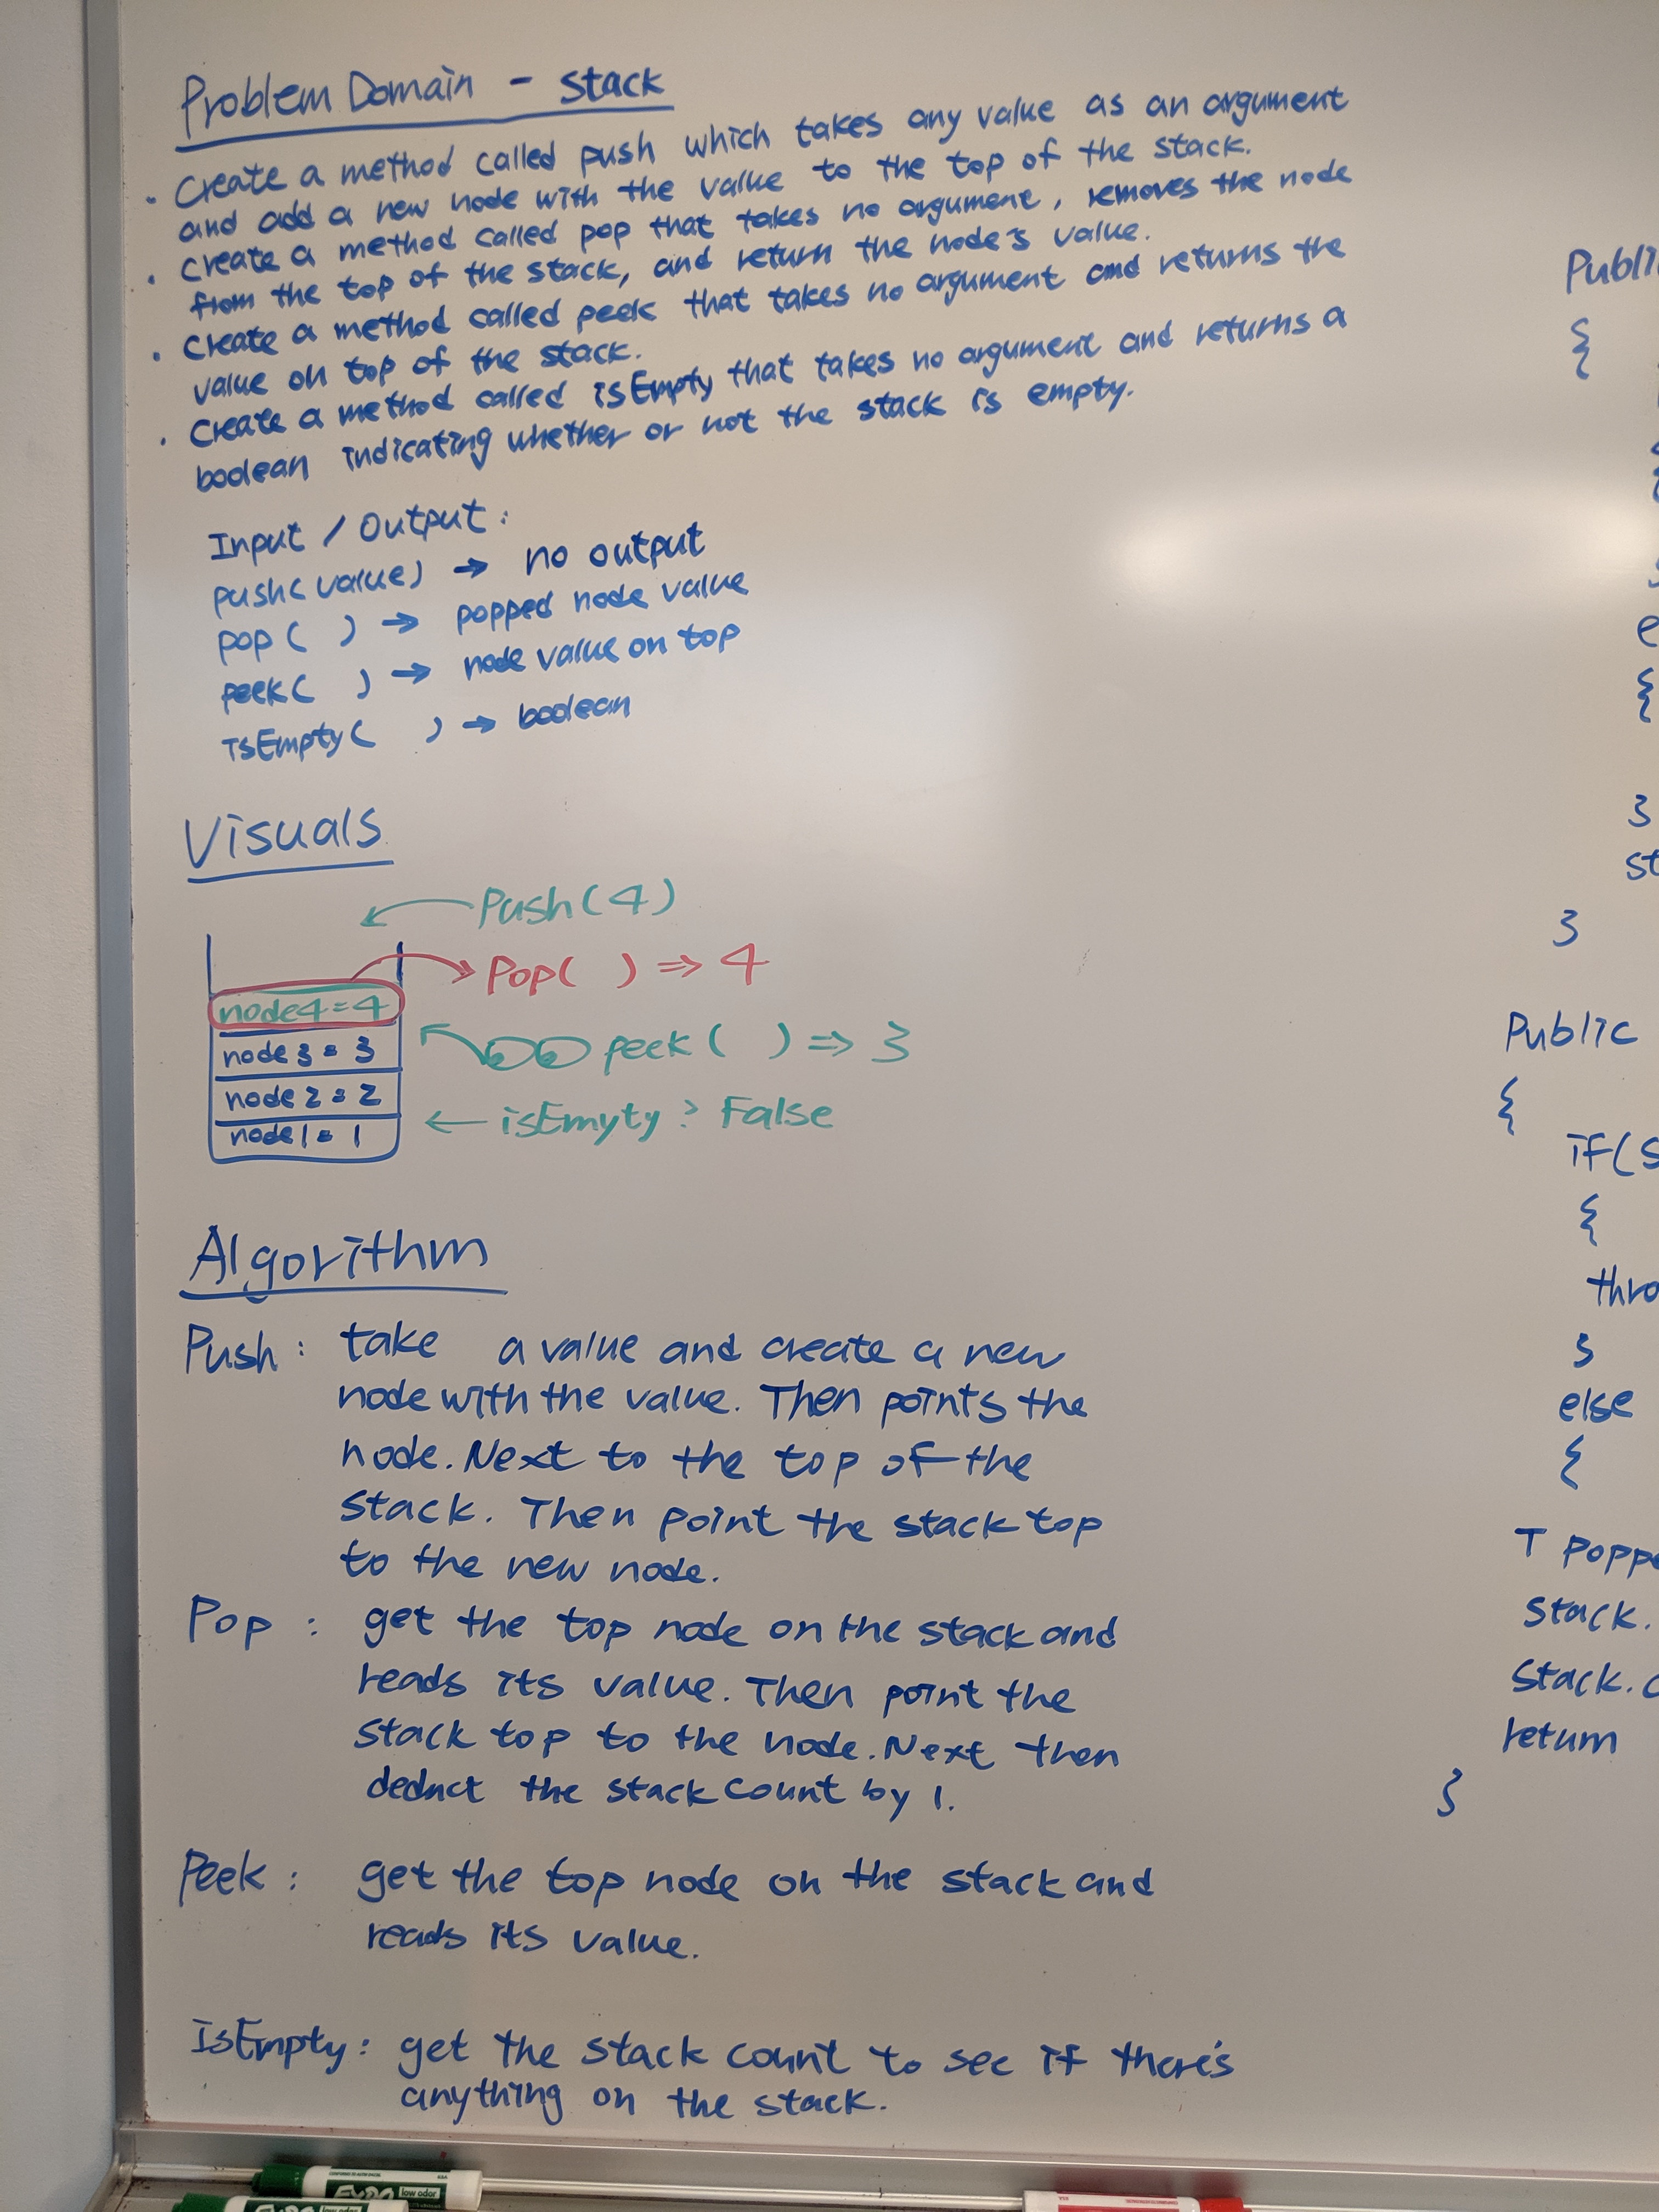 Problem Domain - stack
· Create a method called push which takes any value as an argument
and add a new node with the value to the top of the stack.
· Create a method called pop that takes no argument, removes the node
from the top of the stack, and return the node's value.
· Create a method called peek that takes no argument and returns the
value on top of the stack.
· Create a method called isEmpty that takes no argument and returns a
boolean indicating whether or not the stack is empty.
Input / Output:
push(value) → no output
pop( ) → popped node value
peek( ) → node value on top
isEmpty( ) → boolean
Visuals
Push(4)
Pop( ) ⇒ 4
node4=4
node3=3
node2=2
node1=1
peek( ) ⇒ 3
← isEmyty? False
Algorithm
Push: take a value and create a new
node with the value. Then points the
node.Next to the top of the
stack. Then point the stack top
to the new node.
Pop: get the top node on the stack and
reads its value. Then point the
stack top to the node.Next then
deduct the stack count by 1.
Peek: get the top node on the stack and
reads its value.
IsEmpty: get the stack count to see if there's
anything on the stack.
Publi
{
{
}
st
}
Public
{
if(s
{
thro
}
else
{
T poppe
stack.
stack.c
return
}
EXPO
low odor